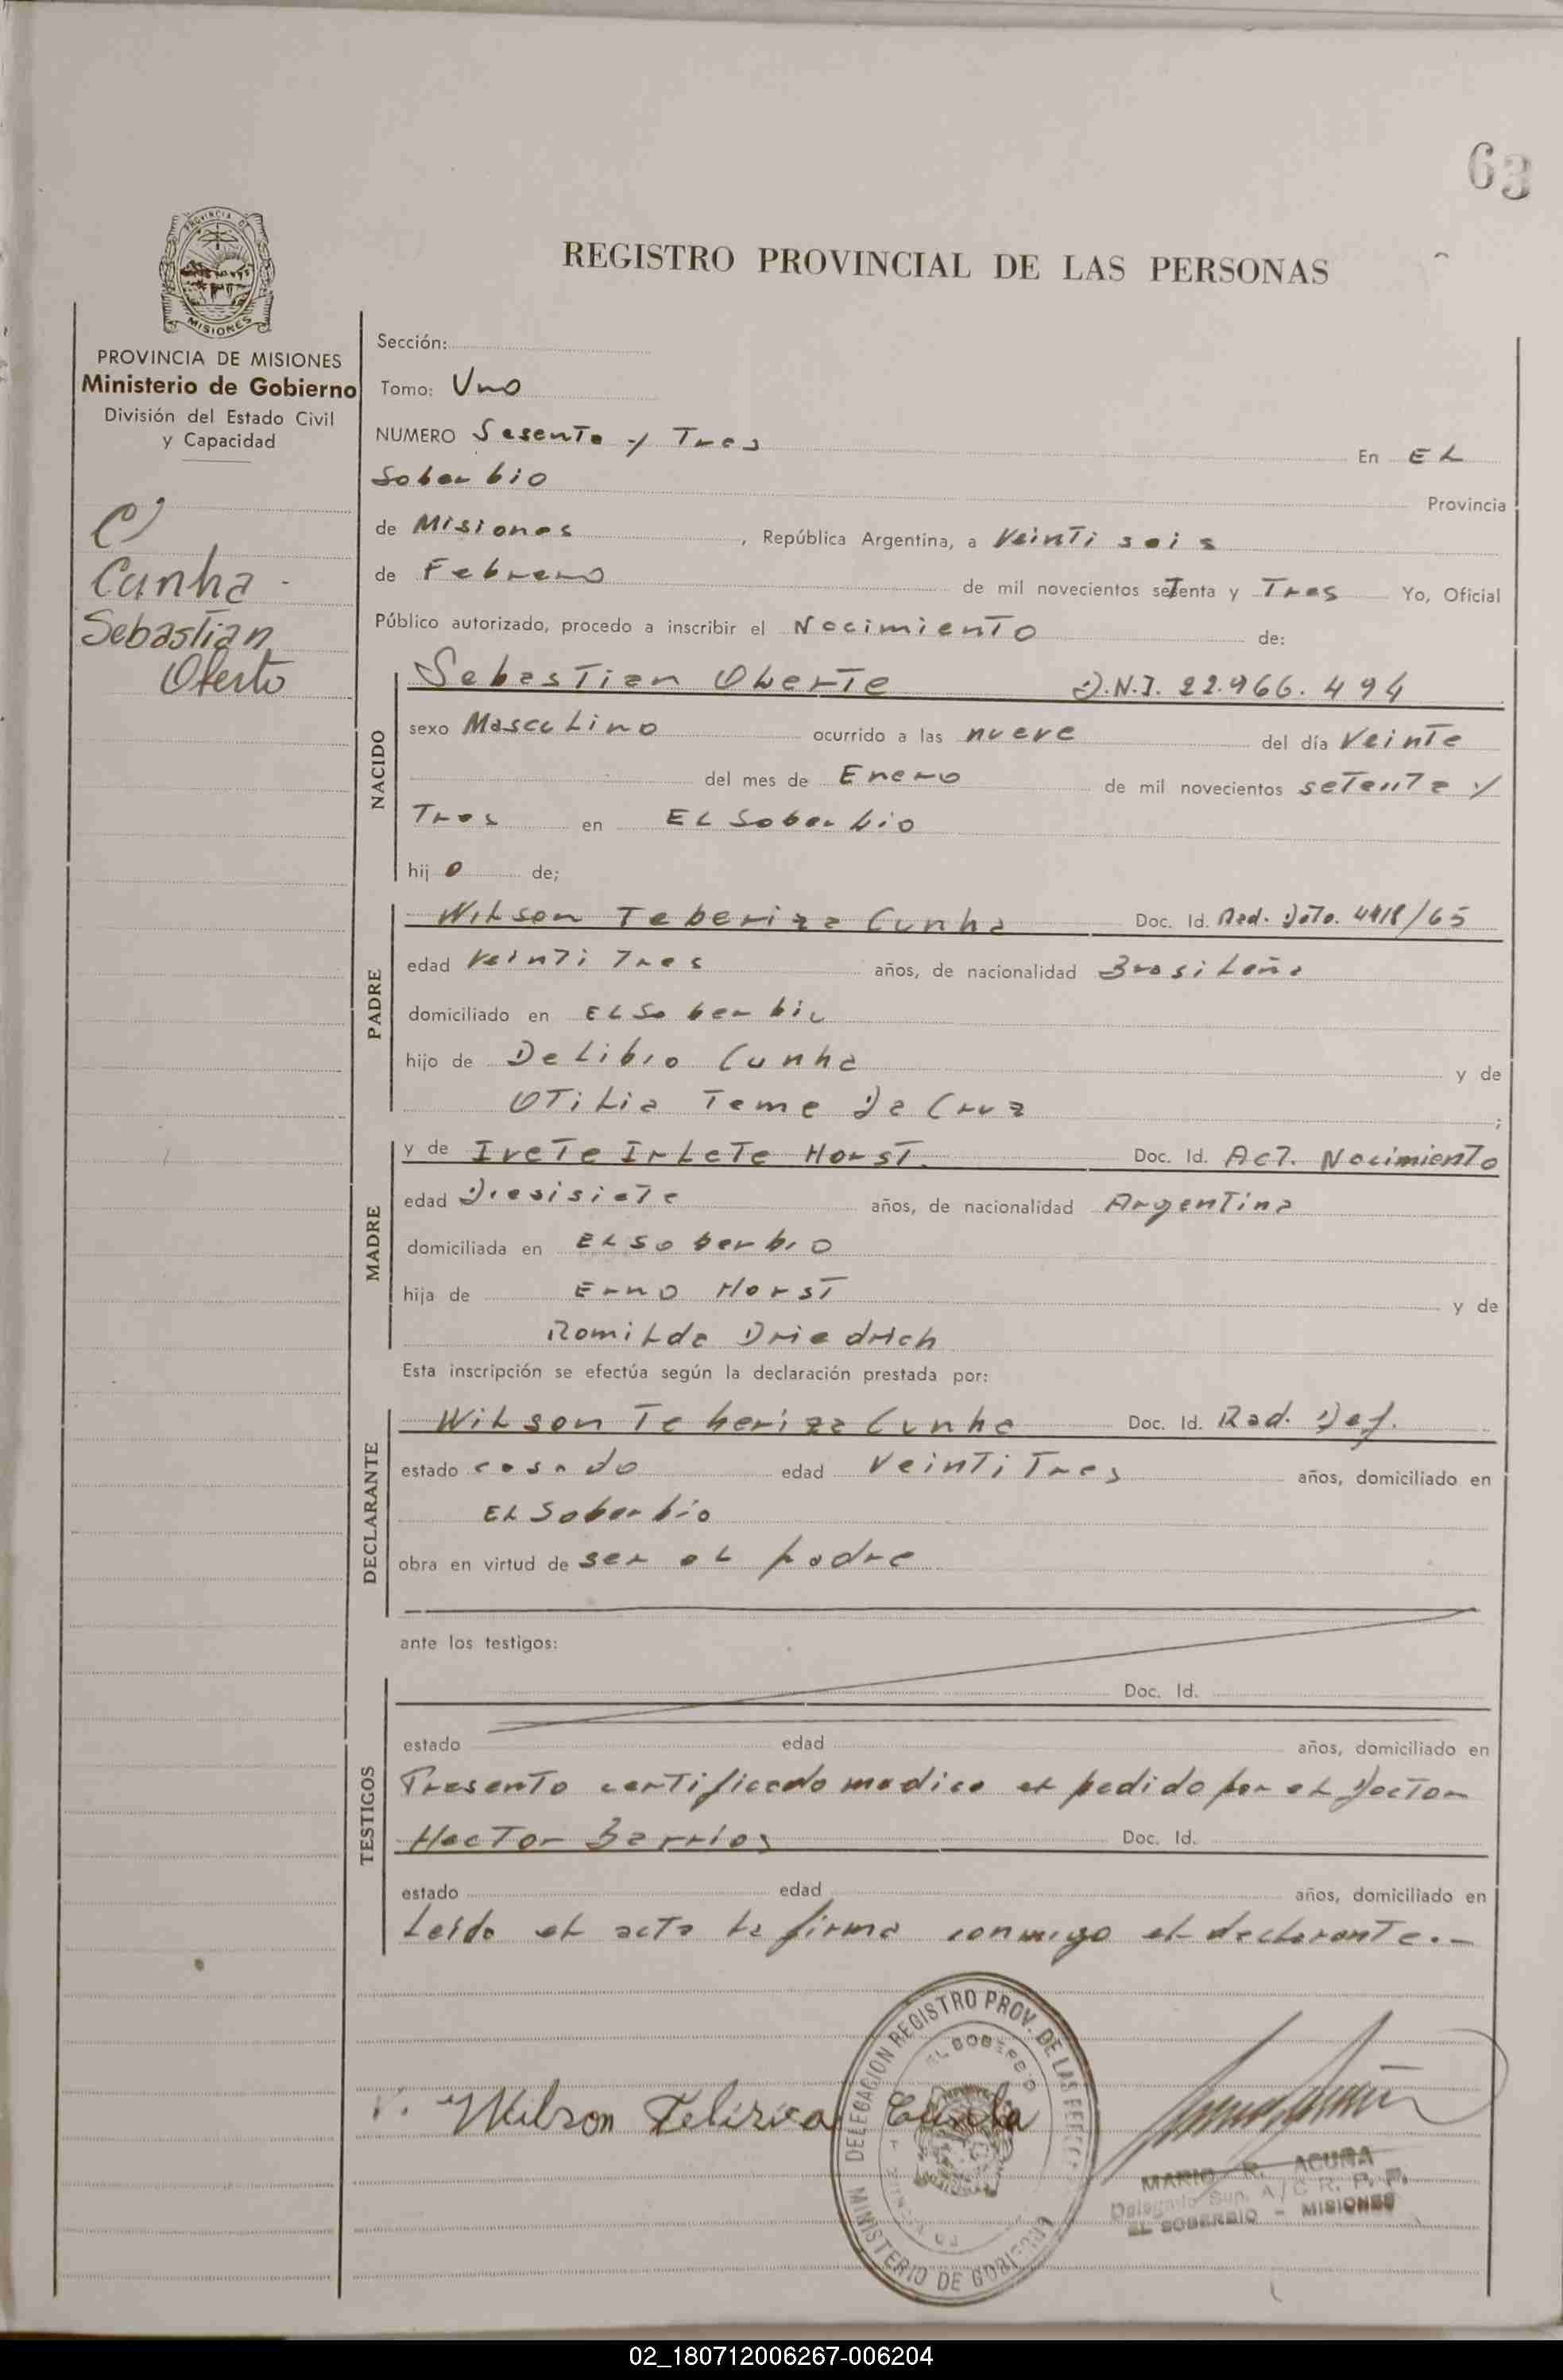 63
REGISTRO PROVINCIAL DE LAS PERSONAS
PROVINCIA DE
MISIONES
PROVINCIA DE MISIONES
Ministerio de Gobierno
División del Estado Civil
y Capacidad
C)
Cunha -
Sebastian
Oberto
Sección:
Tomo: Uno
NUMERO Sesenta y Tres En EL
Soberbio Provincia
de Misiones, República Argentina, a Veinti seis
de Febrero de mil novecientos setenta y Tres Yo, Oficial
Público autorizado, procedo a inscribir el Nacimiento de:
NACIDO
Sebastian Oberte D.N.I. 22.966.494
sexo Masculino ocurrido a las nueve del día Veinte
del mes de Enero de mil novecientos setenta y
Tres en EL Soberbio
hijo de;
PADRE
Wilson Teberiza Cunha Doc. Id. Rad. 4418/65
edad Veinti Tres años, de nacionalidad Brasileña
domiciliado en EL Soberbio
hijo de Delibio Cunha y de
Otilia Teme Da Cruz;
MADRE
y de Ivete Irlete Horst. Doc. Id. Act. Nacimiento
edad Diesisiete años, de nacionalidad Argentina
domiciliada en EL Soberbio
hija de Erno Horst y de
Romilda Driedrich
Esta inscripción se efectúa según la declaración prestada por:
DECLARANTE
Wilson Teberiza Cunha Doc. Id. Rad. Def.
estado casado edad Veinti Tres años, domiciliado en
EL Soberbio
obra en virtud de ser el padre
ante los testigos:
TESTIGOS
Doc. Id.
estado edad años, domiciliado en
Presento certificado medico expedido por el Doctor
Hector Barrios Doc. Id.
estado edad años, domiciliado en
Leida el acta la firma conmigo el declarante.-
Wilson Teberiza Cunha
DELEGACION REGISTRO PROV. DE LAS PERS.
EL SOBERBIO
MINISTERIO DE GOBIERNO
MARIO R. ACUÑA
Delegado Sup. A/C R. P. P.
EL SOBERBIO - MISIONES
02_180712006267-006204